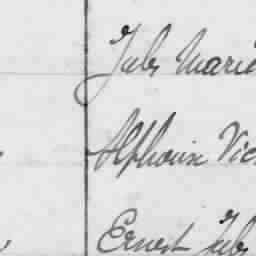 Jules Marie
Alphonse Vic
Ernest Jules